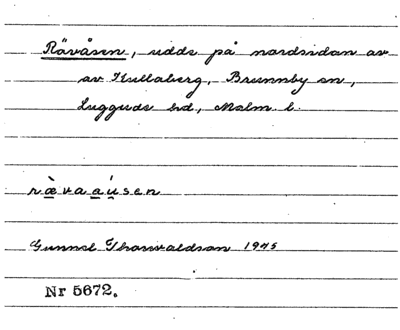 Rävåsen, udde på nordsidan av
av Kullaberg, Brunnby sn,
Luggude hd, Malm. l.
rævaaúsen
Gunnel Thorwaldson 1975
Nr 5672.